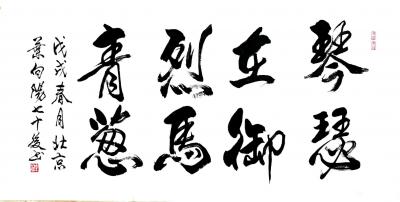 琴瑟
在御
烈馬
青葱
戊戌春月於京
葉向陽七十後書